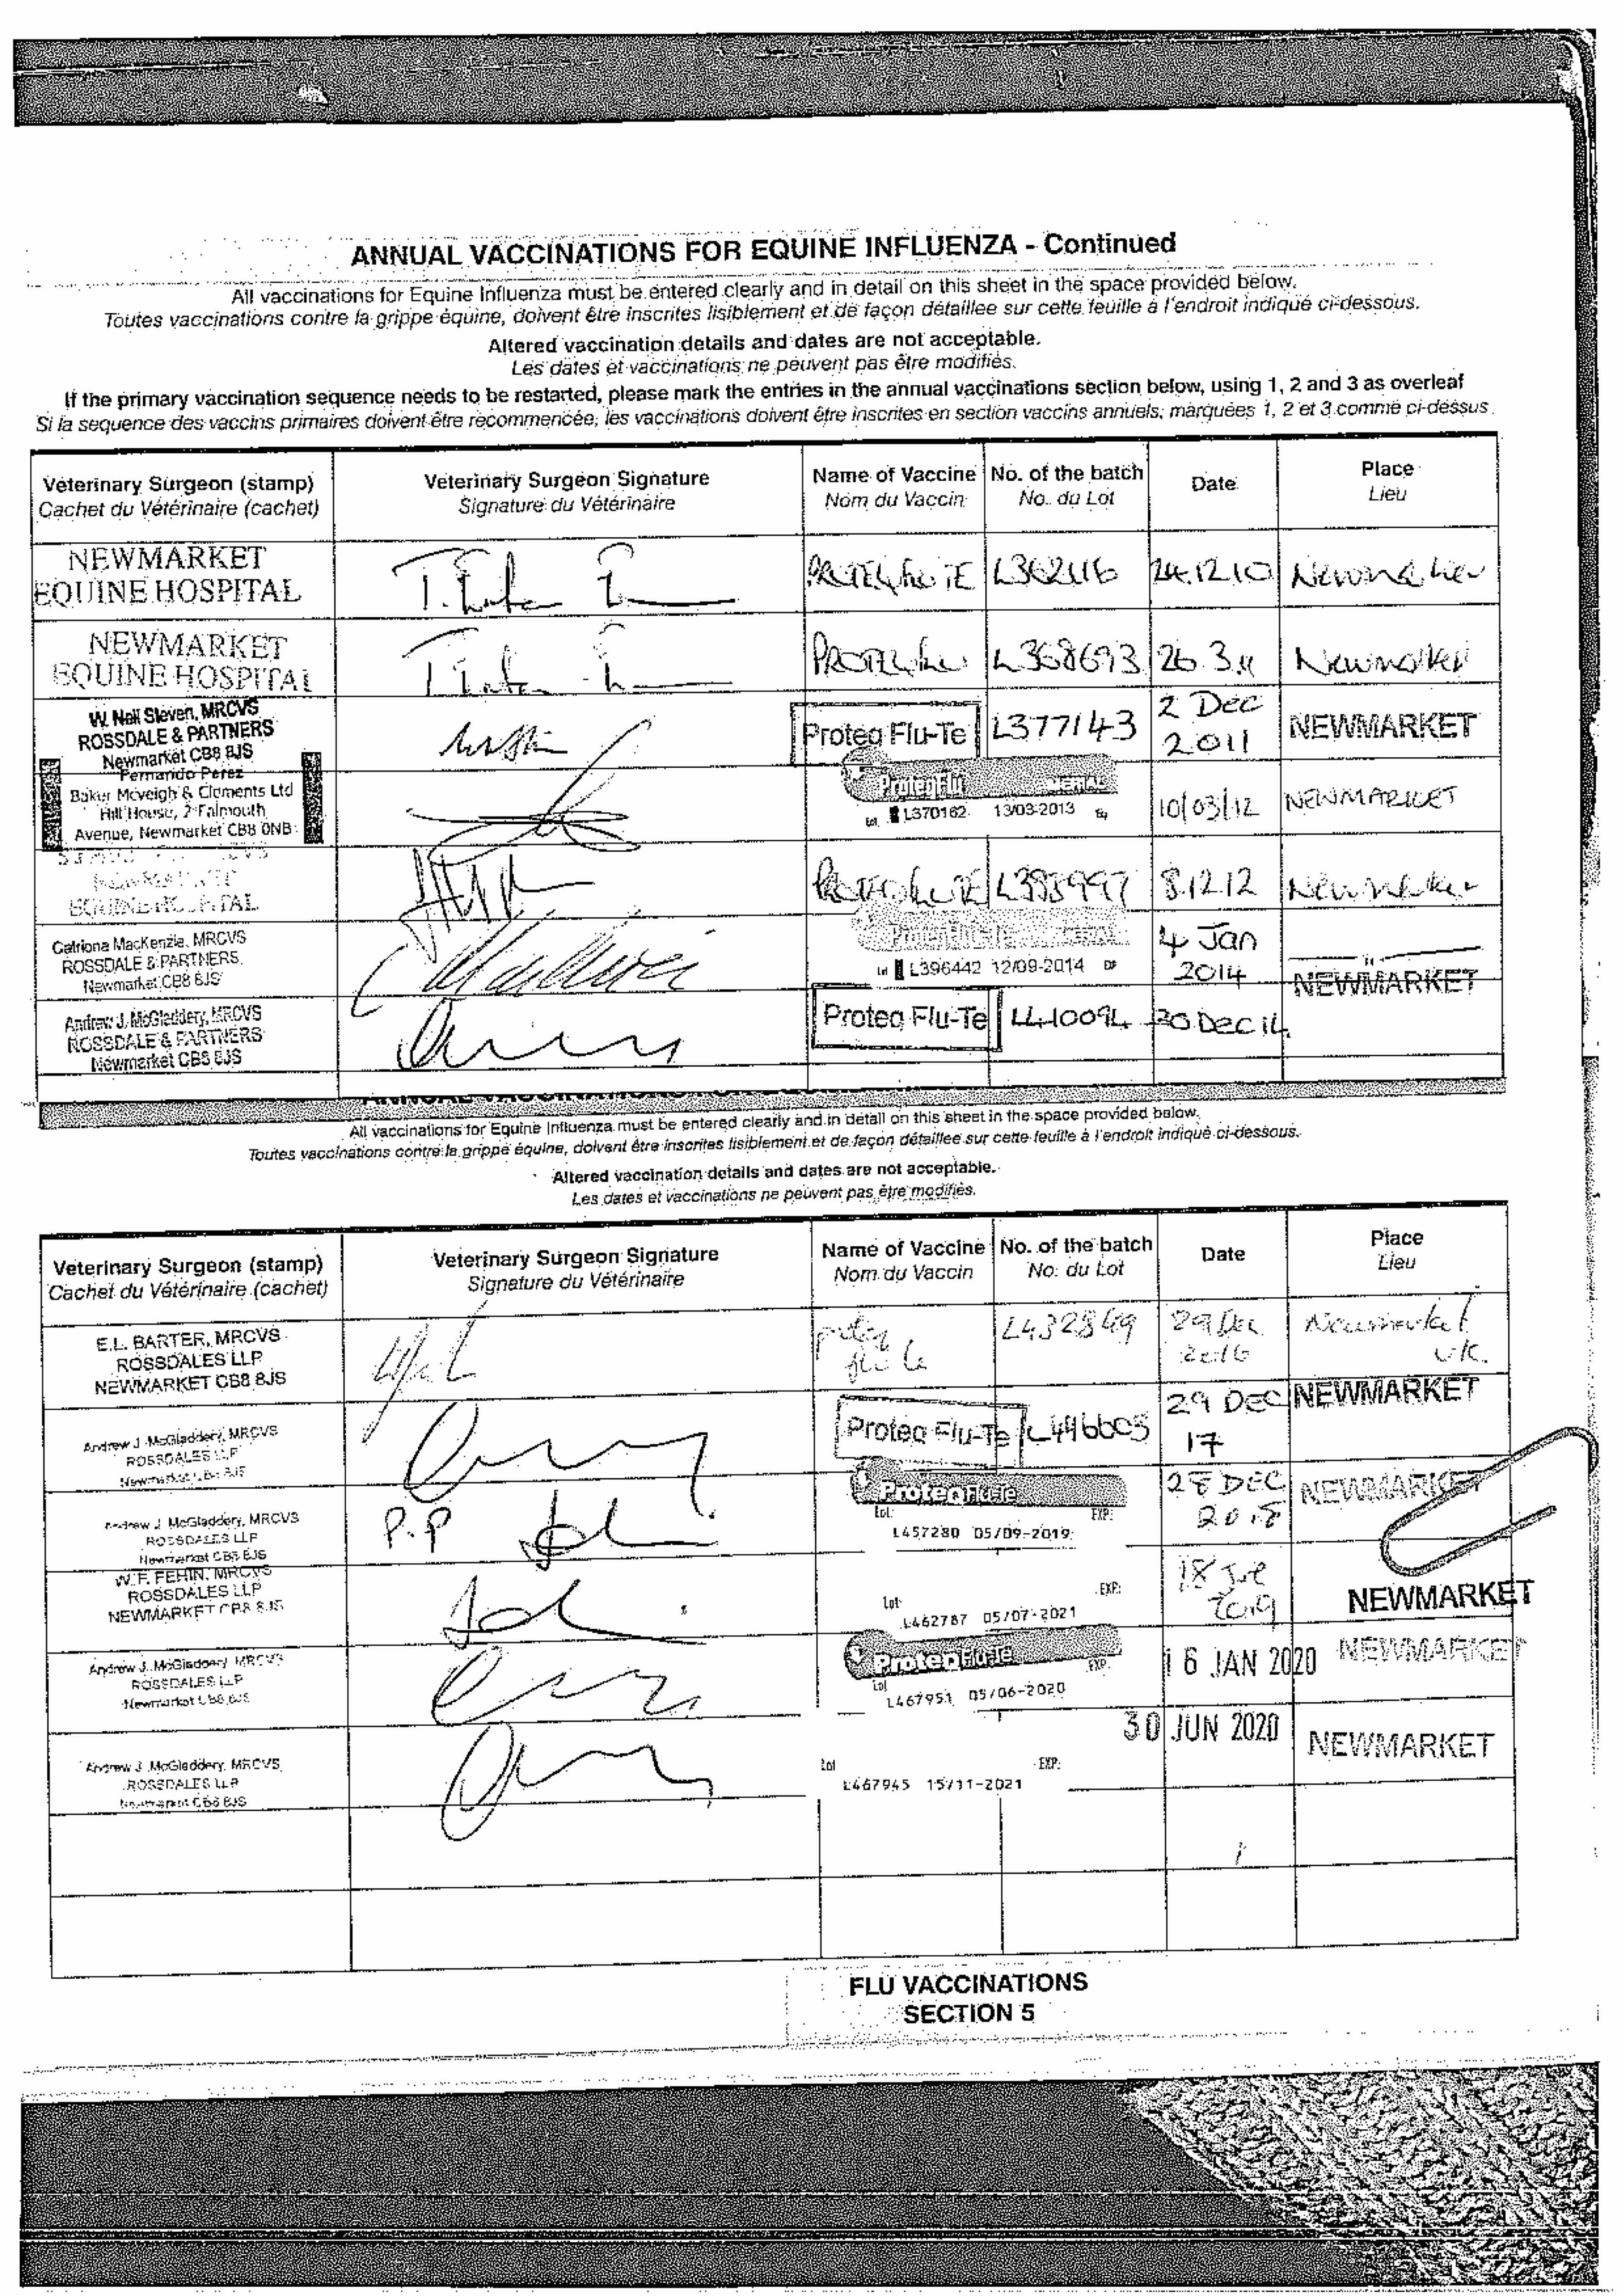 ANNUAL VACCINATIONS FOR EQUINE INFLUENZA - Continued
All vaccinations for Equine Influenza must be entered clearly and in detail on this sheet in the space provided below.
Toutes vaccinations contre la grippe équine, doivent être inscrites lisiblement et de façon détaillee sur cette feuille à l'endroit indiqué ci-dessous.
Altered vaccination details and dates are not acceptable.
Les dates et vaccinations ne peuvent pas être modifiés.
If the primary vaccination sequence needs to be restarted, please mark the entries in the annual vaccinations section below, using 1, 2 and 3 as overleaf
Si la sequence des vaccins primaires doivent être recommencée, les vaccinations doivent être inscrites en section vaccins annuels, marquées 1, 2 et 3 comme ci-dessus.
Veterinary Surgeon (stamp) Veterinary Surgeon Signature Name of Vaccine No. of the batch Date Place
Cachet du Vétérinaire (cachet) Signature du Vétérinaire Nom du Vaccin No. du Lot Lieu
NEWMARKET
EQUINE HOSPITAL 24.12.10 Newmarket
NEWMARKET
EQUINE HOSPITAL L368693 26.3.11 Newmarket
W. Neil Steven, MRCVS
ROSSDALE & PARTNERS
Newmarket CB8 8JS
Proteq Flu-Te L377143 2 Dec
2011 NEWMARKET
Fernando Perez
Baker Mcveigh & Clements Ltd
Hill House, 2 Falmouth
Avenue, Newmarket CB8 0NB
ProteqFlu
Lot L370162 13/03-2013 10/03/12 NEWMARKET
NEWMARKET
EQUINE HOSPITAL 8.12.12 Newmarket
Catriona MacKenzie, MRCVS
ROSSDALE & PARTNERS
Newmarket CB8 8JS
Lot L396442 12/09-2014 4 Jan
2014 NEWMARKET
Andrew J. McGladdery, MRCVS
ROSSDALE & PARTNERS
Newmarket CB8 8JS
Proteq Flu-Te L410094 20 Dec 14
All vaccinations for Equine Influenza must be entered clearly and in detail on this sheet in the space provided below.
Toutes vaccinations contre la grippe équine, doivent être inscrites lisiblement et de façon détaillee sur cette feuille à l'endroit indiqué ci-dessous.
Altered vaccination details and dates are not acceptable.
Les dates et vaccinations ne peuvent pas être modifiés.
Veterinary Surgeon (stamp) Veterinary Surgeon Signature Name of Vaccine No. of the batch Date Place
Cachet du Vétérinaire (cachet) Signature du Vétérinaire Nom du Vaccin No. du Lot Lieu
E.L. BARTER, MRCVS
ROSSDALES LLP
NEWMARKET CB8 8JS
L432849 29 Dec
2016 Newmarket
UK.
Andrew J McGladdery, MRCVS
ROSSDALES LLP
Newmarket CB8 8JS
Proteq Flu-Te L446605 29 DEC
17 NEWMARKET
Andrew J McGladdery, MRCVS
ROSSDALES LLP
Newmarket CB8 8JS
P.P
ProteqFlu-Te
Lot: EXP:
L457280 05/09-2019 28 DEC
2018 NEWMARKET
W.F. FEHIN, MRCVS
ROSSDALES LLP
NEWMARKET CB8 8JS
Lot EXP:
L462787 05/07-2021 18
2019 NEWMARKET
Andrew J. McGladdery MRCVS
ROSSDALES LLP
Newmarket CB8 8JS
ProteqFlu-Te
Lot EXP.
L467951 05/06-2020 16 JAN 2020 NEWMARKET
Andrew J McGladdery, MRCVS
ROSSDALES LLP
Newmarket CB8 8JS
Lot EXP:
L467945 15/11-2021 30 JUN 2020 NEWMARKET
FLU VACCINATIONS
SECTION 5